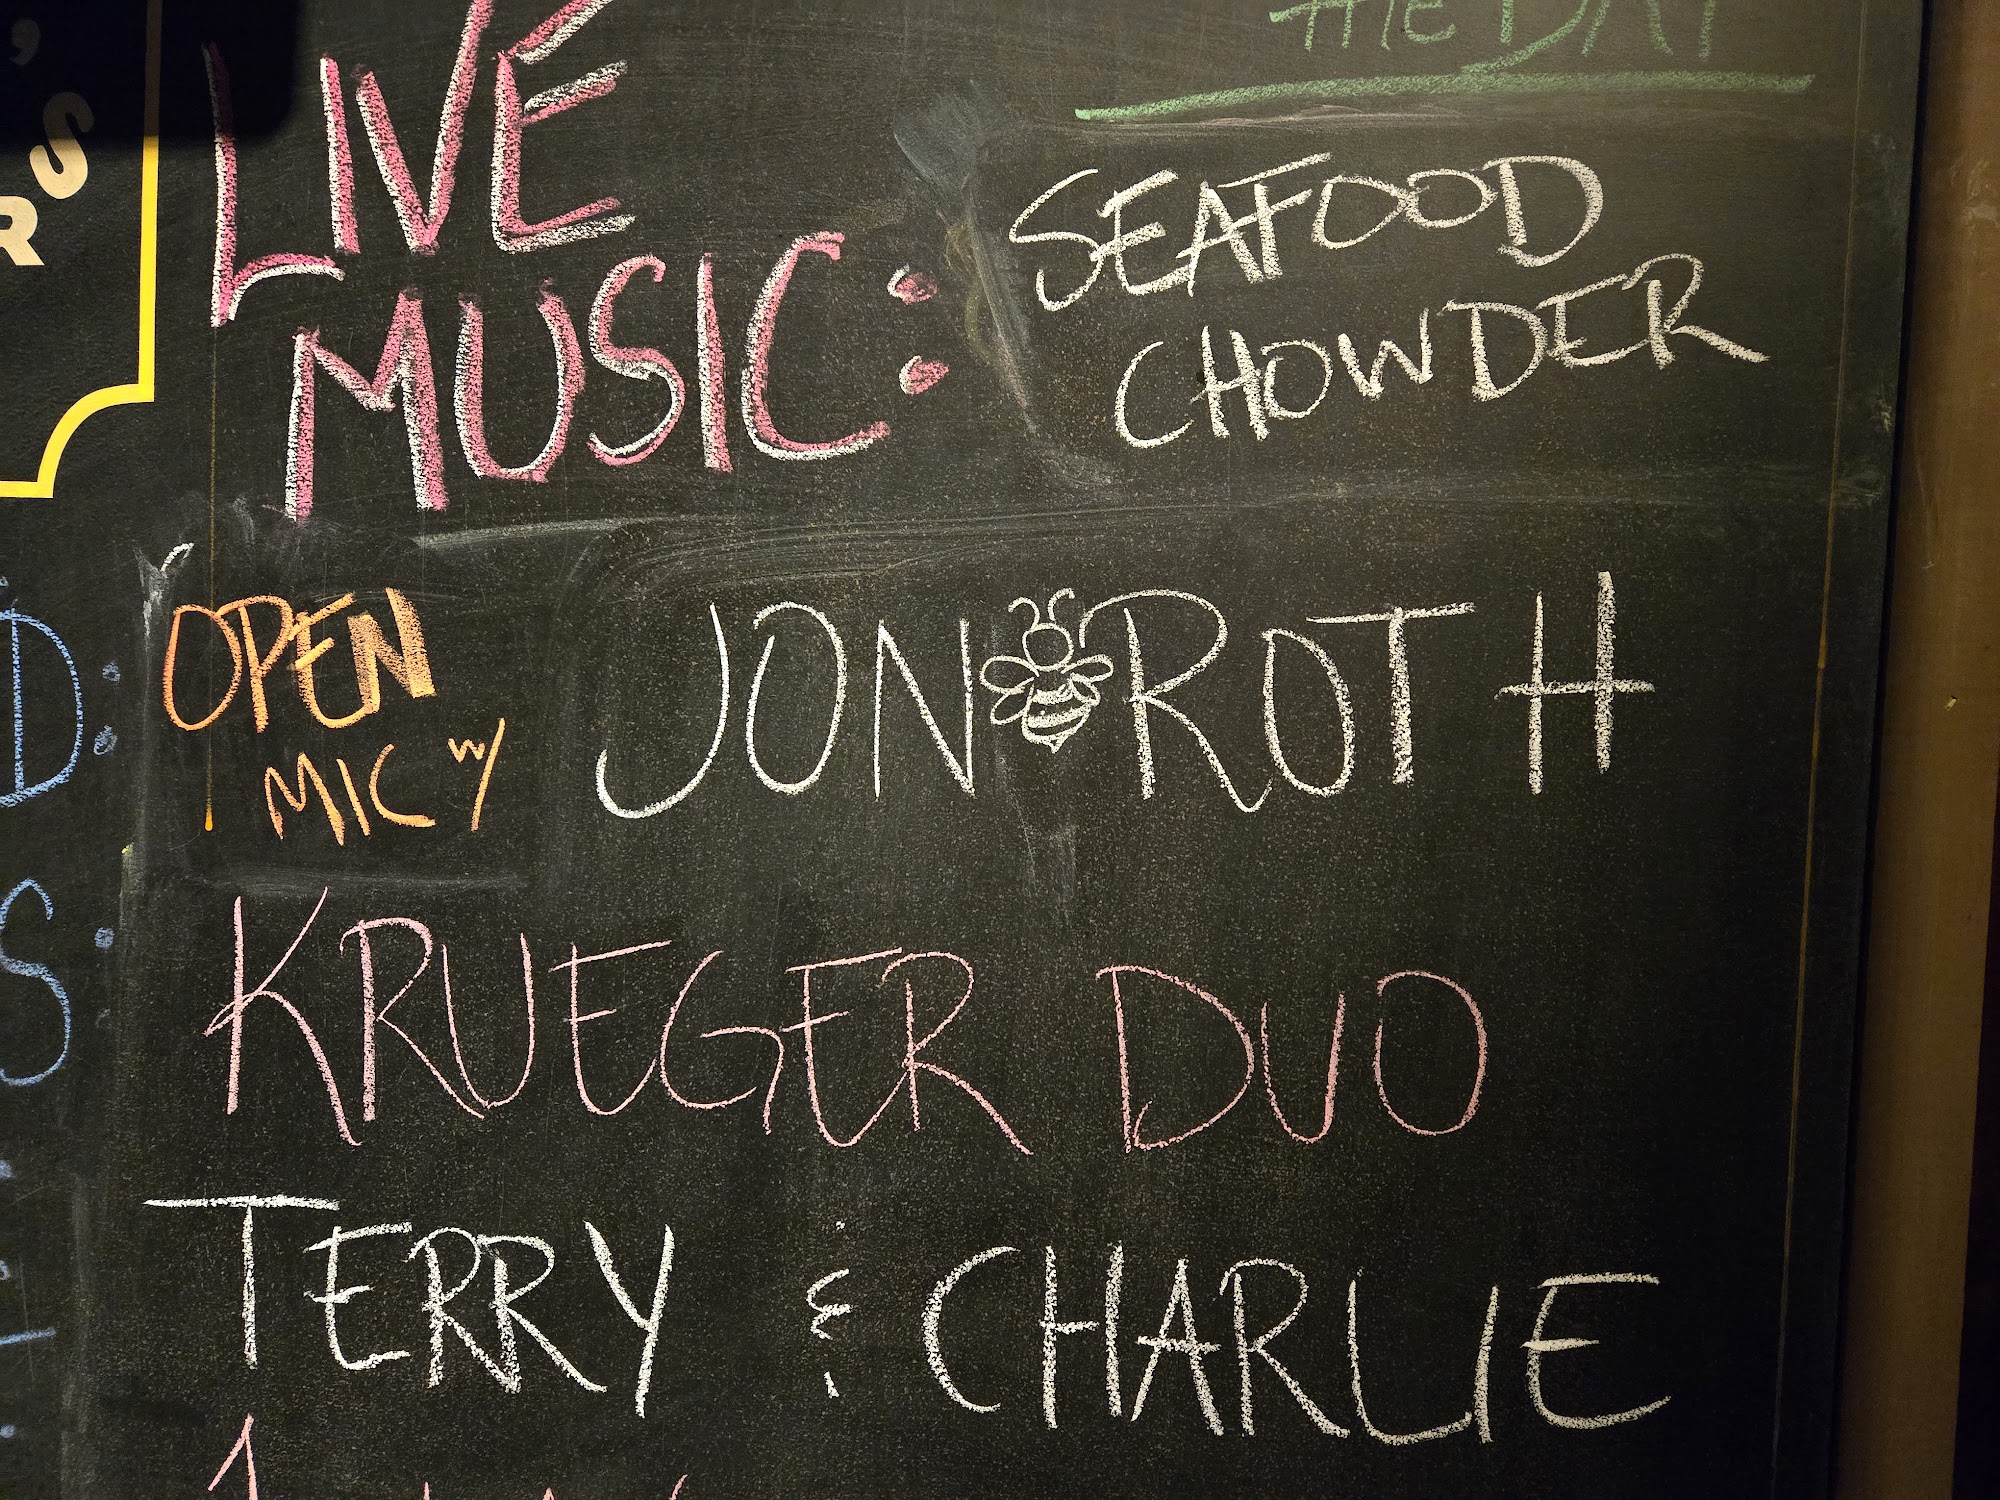 LIVE
MUSIC:
THE DAY
SEAFOOD
CHOWDER
OPEN
MIC w/
JON ROTH
KRUEGER DUO
TERRY & CHARLIE
RS
D:
S: